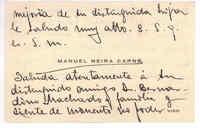 mejoria de su distinguida hija
le saludo muy atto. S. S. q.
e. S. m.
MANUEL NEIRA CARNE
Saluda atentamente á su
distinguido amigo D. Bernar-
dino Machado y familia y
siente de momento no poder
VIGO